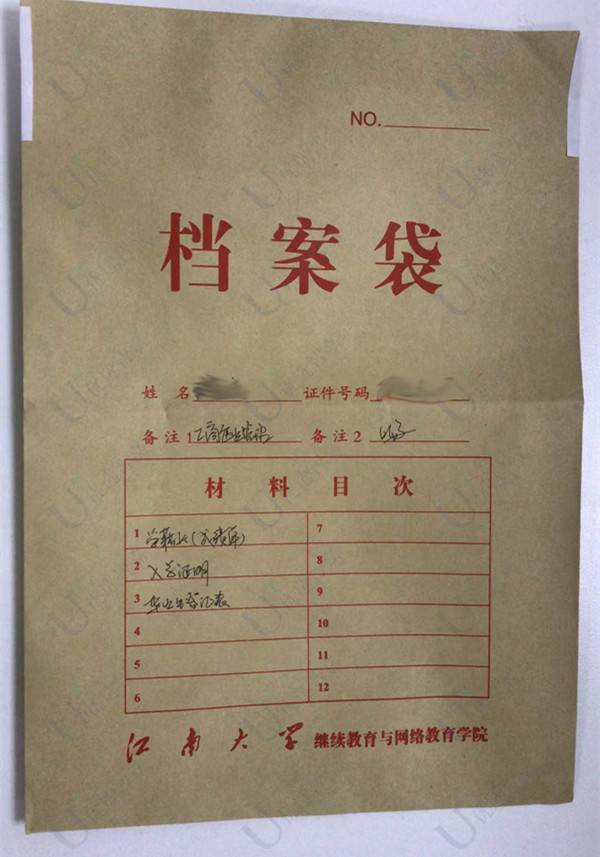 NO.
档案袋
姓 名 证件号码
备注1 备注2
材料目次
1 学籍表(成绩单) 7
2 入学证明 8
3 毕业生登记表 9
4 10
5 11
6 12
江南大学 继续教育与网络教育学院